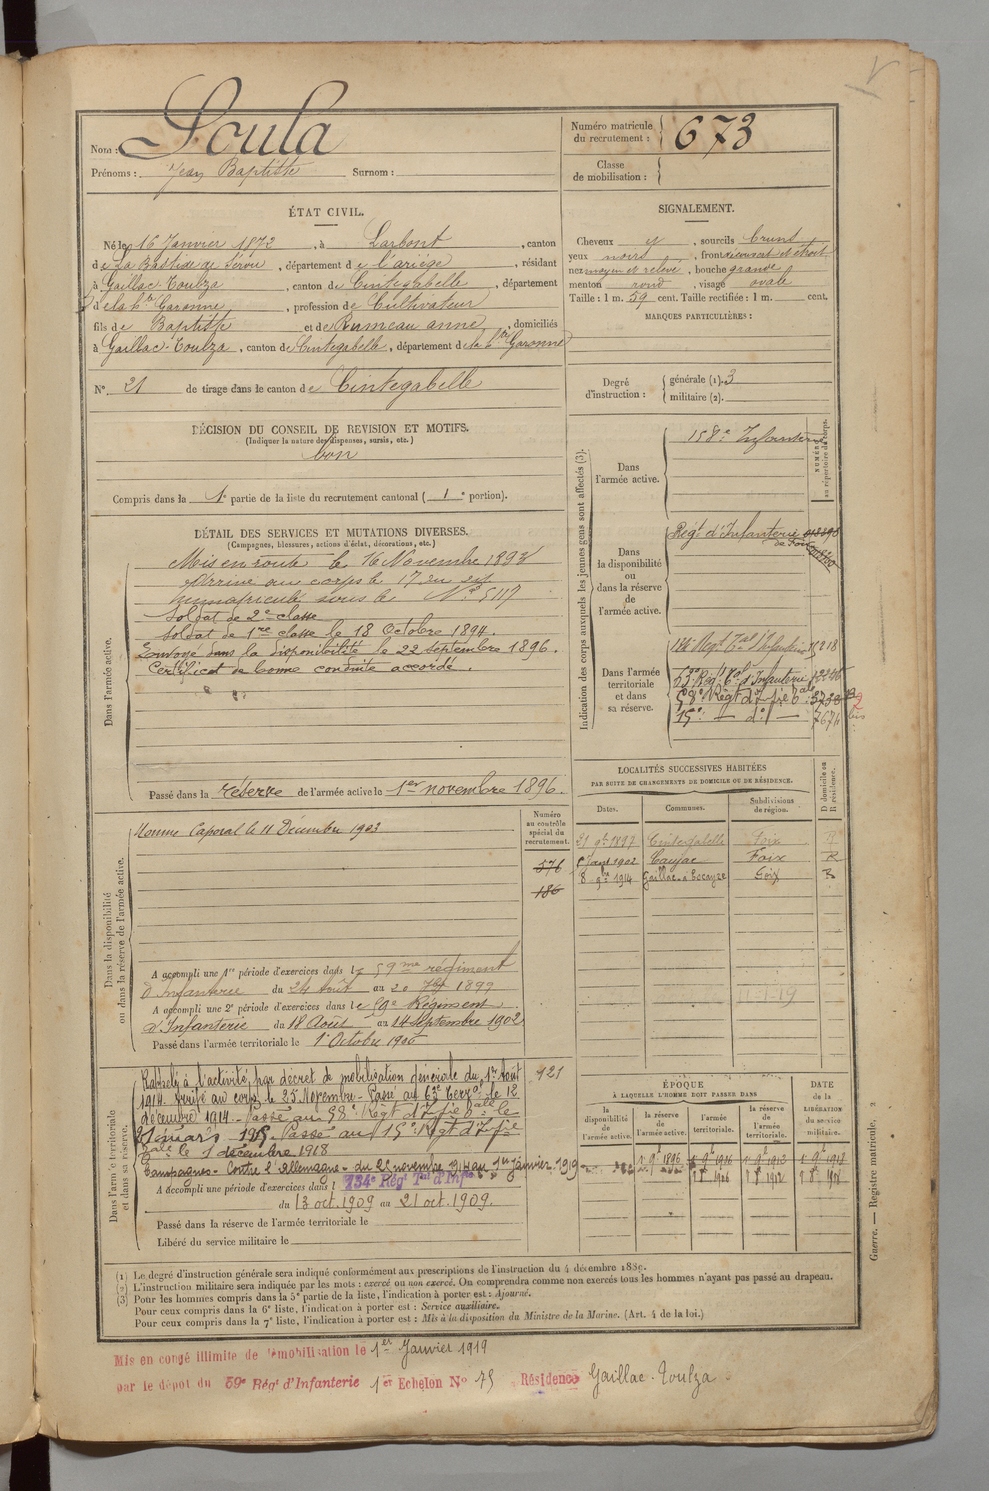 Nom : Soula
Prénoms : Jean Baptiste Surnom :
Numéro matricule du recrutement : 673
Classe de mobilisation :
ÉTAT CIVIL.
Né le 16 Janvier 1872, à Larbont, canton
de La Bastide de Sérou, département de l'ariège, résidant
à Gaillac-Toulza, canton de Cintegabelle, département
de la hte Garonne, profession de Cultivateur
fils de Baptiste et de Rumeau anne, domiciliés
à Gaillac-Toulza, canton de Cintegabelle, département de la hte Garonne
N° 21 de tirage dans le canton de Cintegabelle
SIGNALEMENT.
Cheveux et, sourcils bruns
yeux noirs, front découvert et étroit
nez moyen et relevé, bouche grande
menton rond, visage ovale
Taille : 1 m. 59 cent. Taille rectifiée : 1 m. cent.
MARQUES PARTICULIÈRES :
Degré d'instruction : générale (1). 3
militaire (2).
DÉCISION DU CONSEIL DE REVISION ET MOTIFS.
(Indiquer la nature des dispenses, sursis, etc.)
bon
Compris dans la 1e partie de la liste du recrutement cantonal ( 1e portion).
DÉTAIL DES SERVICES ET MUTATIONS DIVERSES.
(Campagnes, blessures, actions d'éclat, décorations, etc.)
Dans l'armée active.
Mis en route le 16 Novembre 1893
Arrivé au corps le 17 du
Immatriculé sous le N° 5117
Soldat de 2e classe
Soldat de 1re classe le 18 Octobre 1894.
Envoyé dans la disponibilité le 22 septembre 1896.
Certificat de bonne conduite accordé.
Passé dans la réserve de l'armée active le 1er novembre 1896.
Indication des corps auxquels les jeunes gens sont affectés (3).
NUMÉRO au répertoire du corps.
Dans l'armée active.
158e Infanterie
Dans la disponibilité ou dans la réserve de l'armée active.
Régt d'Infanterie
de Foix
Dans l'armée territoriale et dans sa réserve.
134 Régt Tal d'Infanterie
63e Régt Tal d'Infanterie
58e Régt d'Ifie
15e — do —
LOCALITÉS SUCCESSIVES HABITÉES
PAR SUITE DE CHANGEMENTS DE DOMICILE OU DE RÉSIDENCE.
Dates. Communes. Subdivisions de région. D domicile ou R résidence.
21 9bre 1897 Cintegabelle Foix R
1902 Caujac Foix R
8 9bre 1914 Gaillac Foix R
Dans la disponibilité ou dans la réserve de l'armée active.
Numéro au contrôle spécial du recrutement.
Nommé Caporal le 11 Décembre 1903
576
186
A accompli une 1re période d'exercices dans le 59me régiment
d'Infanterie du 24 Août au 20 7bre 1899
A accompli une 2e période d'exercices dans le 59e Régiment
d'Infanterie du 18 Août au 14 Septembre 1902
Passé dans l'armée territoriale le 1er Octobre 1906
Dans l'armée territoriale et dans sa réserve.
Rappelé à l'activité, par décret de mobilisation générale du 1er Août
1914. Arrivé au corps le 25 Novembre - Passé au 63e Terral le 12
décembre 1914 - Passé au 58e Régt d'Ifie tale le
31 mars 1915. Passé au 15e Régt d'Ifie
tale le 1 décembre 1918
Campagnes - Contre l'Allemagne - du 25 novembre 1914 au 1er janvier 1919
121
A accompli une période d'exercices dans le 134e Régt Tal d'Infie
du 13 oct. 1909 au 21 oct. 1909.
Passé dans la réserve de l'armée territoriale le
Libéré du service militaire le
ÉPOQUE
À LAQUELLE L'HOMME DOIT PASSER DANS
la disponibilité de l'armée active. la réserve de l'armée active. l'armée territoriale. la réserve de l'armée territoriale.
DATE de la LIBÉRATION du service militaire.
(1) Le degré d'instruction générale sera indiqué conformément aux prescriptions de l'instruction du 4 décembre 1889.
(2) L'instruction militaire sera indiquée par les mots : exercé ou non exercé. On comprendra comme non exercés tous les hommes n'ayant pas passé au drapeau.
(3) Pour les hommes compris dans la 5e partie de la liste, l'indication à porter est : Ajourné.
Pour ceux compris dans la 6e liste, l'indication à porter est : Service auxiliaire.
Pour ceux compris dans la 7e liste, l'indication à porter est : Mis à la disposition du Ministre de la Marine. (Art. 4 de la loi.)
Guerre. — Registre matricule. 2
Mis en congé illimité de démobilisation le 1er Janvier 1919
par le dépôt du 59e Régt d'Infanterie 1er Echelon N° 75 Résidence Gaillac-Toulza.